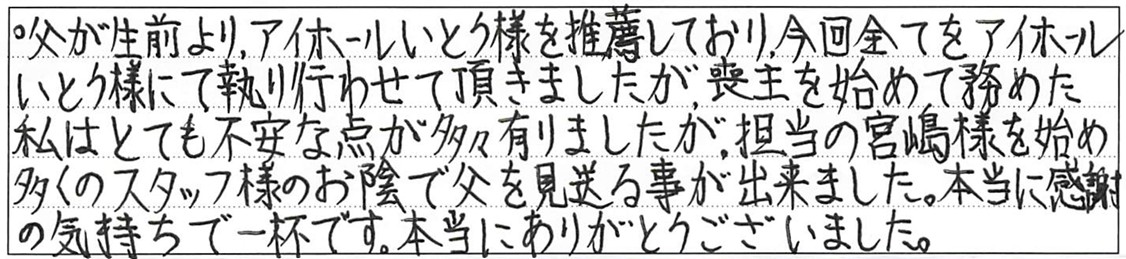 ○父が生前より,アイホールいとう様を推薦しており,今回全てをアイホール
いとう様にて執り行わせて頂きましたが,喪主を始めて務めた
私はとても不安な点が多々有りましたが,担当の宮嶋様を始め
多くのスタッフ様のお陰で父を見送る事が出来ました。本当に感謝
の気持ちで一杯です。本当にありがとうございました。